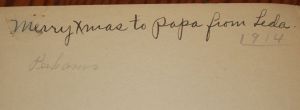 Merry Xmas to papa from Leda.
1914